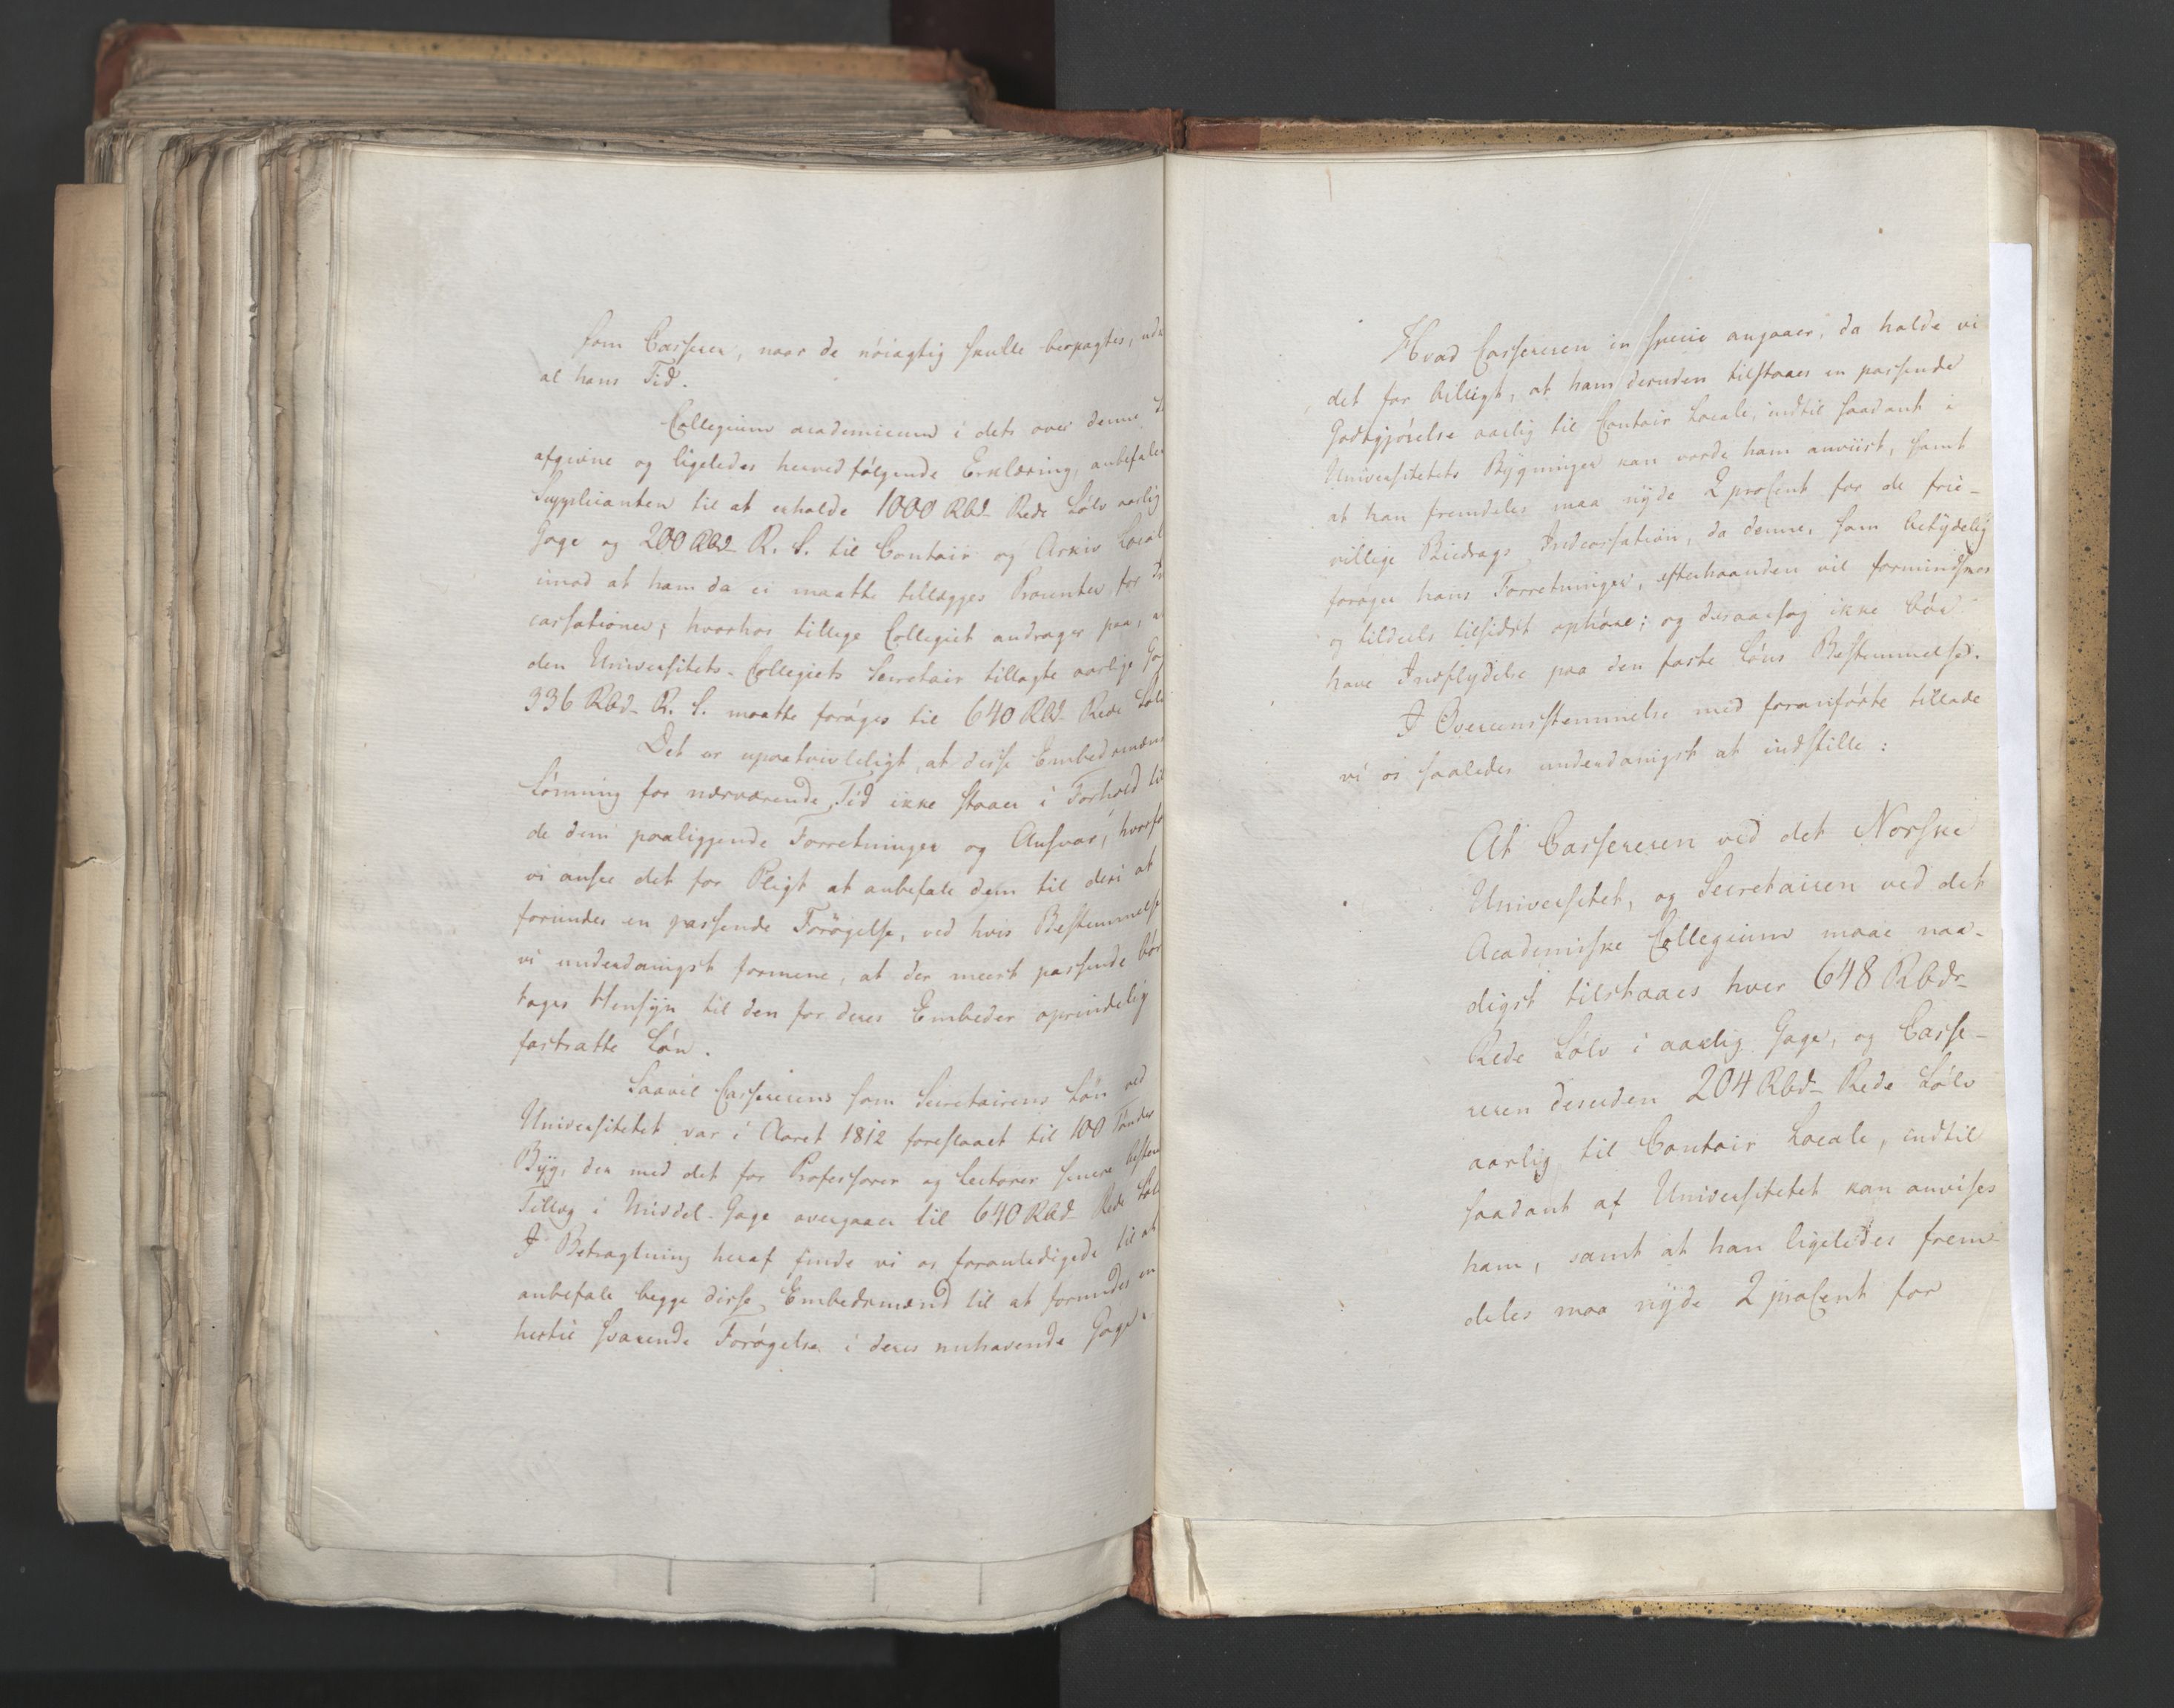 som Casserer, naar de nöiagtig skulle besørgtes, ud
al hans Tid.
Collegium academicum i dets over denne
afgivne og ligeledes hermed følgende Erklæring, anbefaler
Supplicanten til at erholde 1000 Rbd. Rede Sölv aarlig
Gage og 200 Rbd. R. S. til Contoir og Arkiv Local
imod at ham da ei maatte tillægges Procenter for In
cassationer; hvorhos tillige Collegiet andrager paa, a
den Universitets-Collegiets Secretair tillagte aarlige Ga
336 Rbd. R. S. maatte foröges til 640 Rbd. Rede Söl
Det er upaatvivleligt, at disse Embedsmænds
Lönning for nærværende Tid ikke staaer i Forhold til
de dem paaliggende Forretninger og Ansvar, hvorfo
vi ansee det for Pligt at anbefale dem til deri at
forundes en passende Forögelse, ved hvis Bestemmelse
vi underdanigst formene, at der meest passende bör
tages Hensyn til den for deres Embeder oprindelig
fastsatte Lön.
Saavel Cassererens som Secretairens Lön ved
Universitetet var i Aaret 1812 foreslaaet til 100 Tönder
Byg, der med det for Professorer og Lectorer senere bestem
Tillæg i Middel-Gage overgaaer til 640 Rbd. Rede Söl
I Betragtning heraf finde vi os foranledigede til at
anbefale begge disse Embedsmænd til at forundes en
hertil svarende Forögelse i deres nuhavende Gage.
Hvad Cassereren in specie angaaer, da holde vi
det for billigt, at ham desuden tilstaaes en passende
Godtgjörelse aarlig til Contoir Locale, indtil saadant i
Universitetets Bygninger kan vorde ham anviist, samt
at han fremdeles maa nyde 2 proCent for de frie-
villige Bidrags Indcassation, da denne, som betydelig
foröger hans Forretninger, efterhaanden vil formindskes
og tildeels tilsidst ophöre; og desaarsag ikke bör
have Indflydelse paa den faste Löns Bestemmelse.
I Overeensstemmelse med foranförte tillade
vi os saaledes underdanigst at indstille:
At Cassereren ved det Norske
Universitet, og Secretairen ved det
Academiske Collegium maae naa-
digst tilstaaes hver 648 Rbdr.
Rede Sölv i aarlig Gage, og Casse-
reren desuden 204 Rbd. Rede Sölv
aarlig til Contoir Locale, indtil
saadant af Universitetet kan anvises
ham, samt at han ligeledes frem-
deles maa nyde 2 proCent for